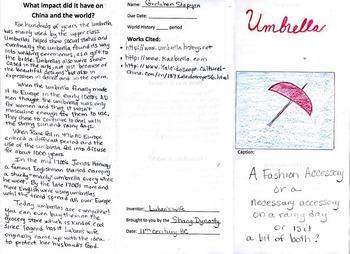 What impact did it have on
China and the world?
For hundreds of years the
umbrella was mainly used by the upper class.
Umbrellas helped show social status and
eventually the umbrella found its way
into wedding ceremonies, as a gift to
the bride. Umbrellas were also
used in the arts, not just because of
the beautiful designs, but also in
expression in dance and in the opera.
When the umbrella finally made
it to Europe in the early 1000's AD
Men thought the umbrella was only
for women and that it wasn't
masculine enough for them to use,
they chose to continue to deal with
the strong sun and rainy days.
When Rome fell in 476 AD Europe
entered a difficult period and the
use of the umbrella fell into disuse
for about 1000 years.
In the mid 1700's Jonas Hanway
a famous Englishman started carrying
a sturdy "manly" umbrella every where
he went. By the late 1700's more and
more English were using umbrellas
until the trend spread all over Europe.
Today umbrellas are everywhere!
You can even buy them at the
grocery store which is kind of cool
since legend has it Luban's wife
originally came up with the idea
to protect her husband's food.
Name: Gretchen
Due Date:
World History period
Works Cited:
http://www.umbrellahistory.net
http://www.Kazbrella.com
http://www.Kaleidoscope.cultural-
china.com/en/137Kaleidoscope56.html
Inventor: Luban's wife
Brought to you by the Shang Dynasty
Date: 11th century BC
Umbrella
Caption:
A Fashion Accessory
or a
necessary accessory
on a rainy day
or is it
a bit of both?